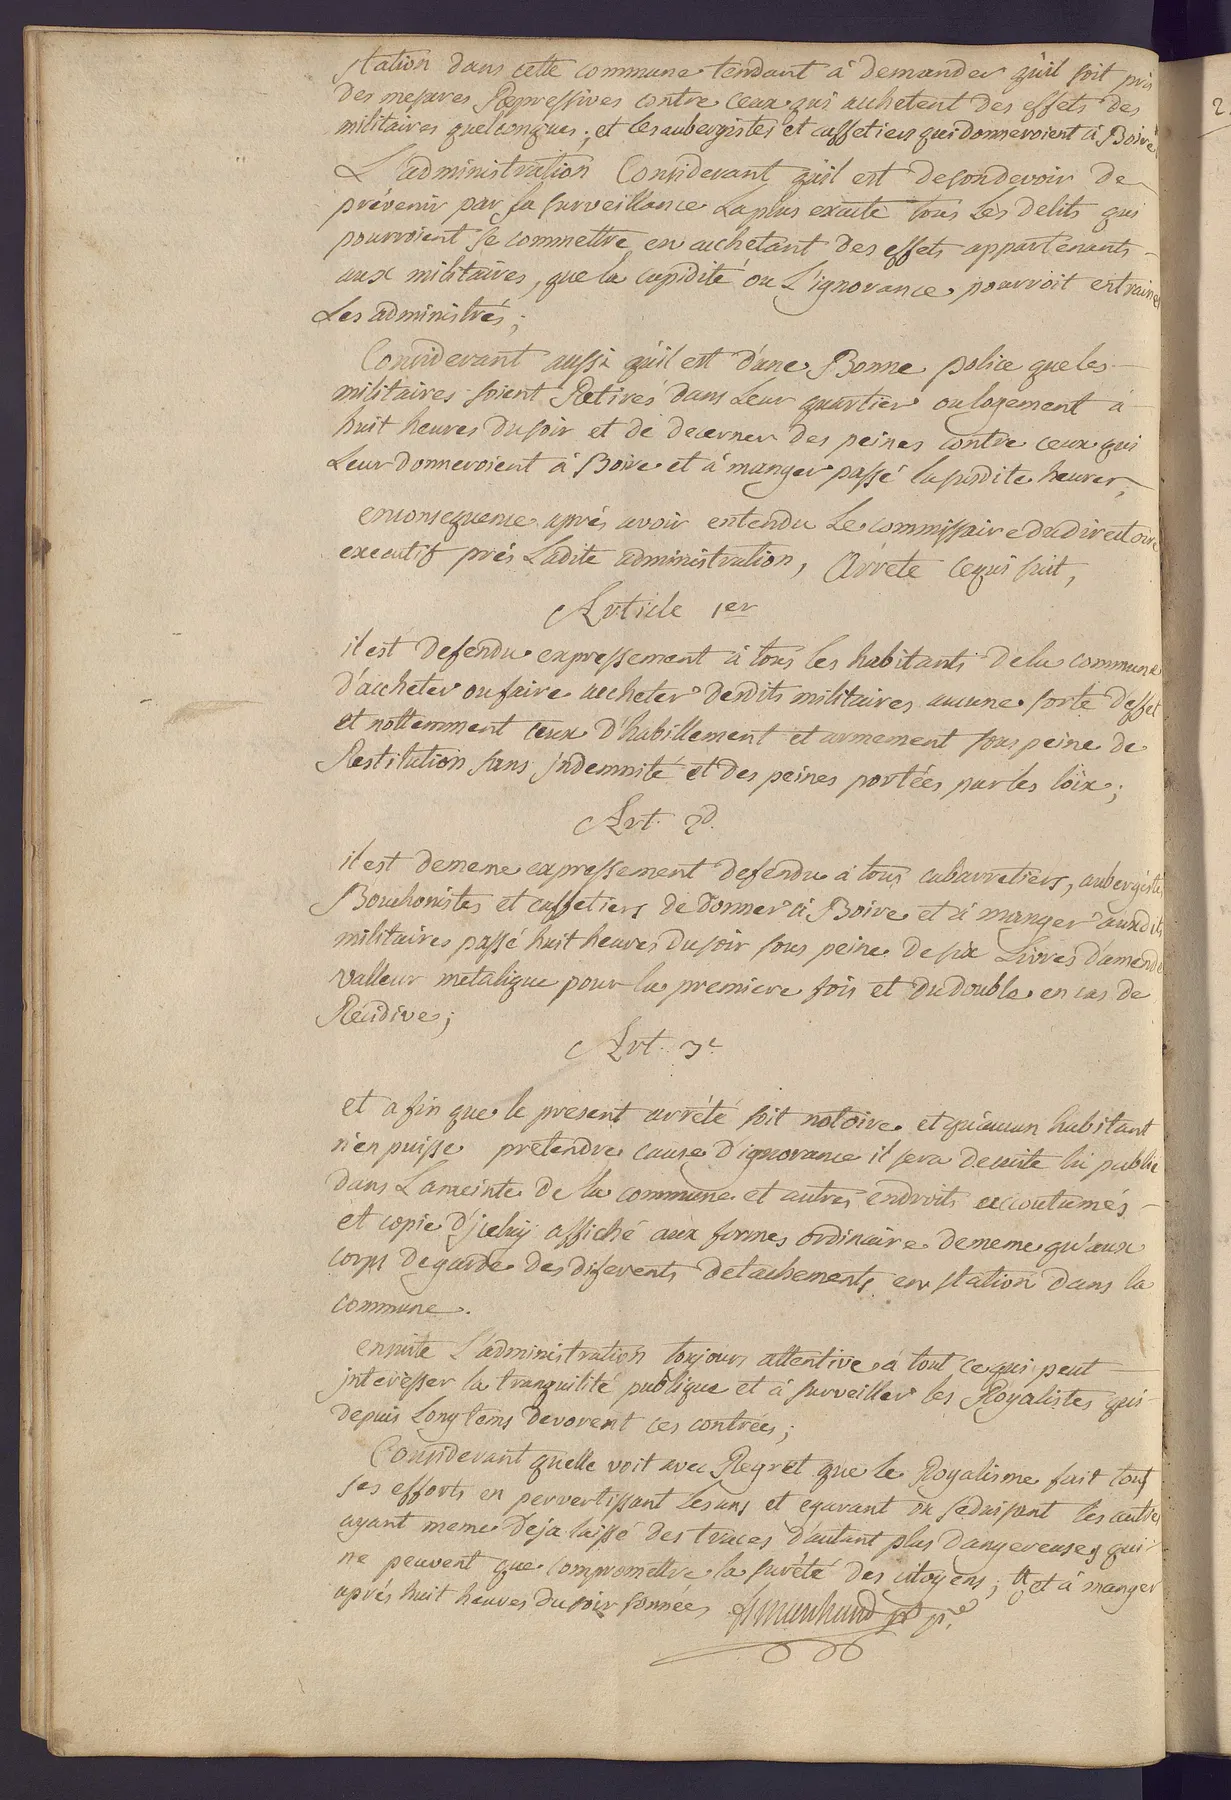 station dans cette commune tendant à demander qu'il soit pris
des mesures Repressives contre ceux qui achetent des effets des
militaires quelconques; et les aubergistes et caffetiers qui donneroient à Boire
L'administration Considerant qu'il est de son devoir de
prévenir par sa surveillance La plus exacte tous les delits qui
pourroient se commettre en achetant des effets appartenants
aux militaires, que la cupidité ou L'ignorance pourroit entrainer
Les administrés;
Considerant aussi qu'il est d'une Bonne police que les
militaires soient Retirés dans Leur quartier ou logement à
huit heures du soir et de decerner des peines contre ceux qui
Leur donneroient à Boire et à manger passé la susdite heure;
en consequence après avoir entendu Le commissaire du directoire
executif près Ladite administration, Arrete ce qui suit,
Article 1er
il est defendu expressement à tous les habitants de la commune
d'accheter ou faire accheter desdits militaires aucune sorte d'effet
et nottemment ceux d'habillement et armement sous peine de
Restitution sans indemnité et des peines portées par les loix;
Art. 2d.
il est de meme expressement defendu à tous cabarretiers, aubergistes
Bouchonistes et caffetiers de donner à Boire et à manger auxdits
militaires passé huit heures du soir sous peine de six Livres d'amende
valleur metalique pour la premiere fois et du double en cas de
Recidive;
Art. 3e
et afin que le present arrêté soit notoire et qu'aucun habitant
n'en puisse pretendre cause d'ignorance il sera de suite lu publié
dans L'anceinte de la commune et autres endroits accoutumés
et copie d'iceluy affiché aux formes ordinaire de meme qu'aux
corps de garde des diferents detachements en station dans la
commune.
ensuite L'administration toujours attentive à tout ce qui peut
interesser la tranquilité publique et à surveiller les Royalistes qui
depuis Longtems devorent ces contrées;
Considerant quelle voit avec Regret que le Royalisme fait tous
ses efforts en pervertissant les uns et egarant ou seduisant les autres
ayant meme deja laissé des traces d'autant plus dangereuses qui
ne peuvent que compromettre la sureté des citoyens; et à manger
après huit heures du soir sonnées